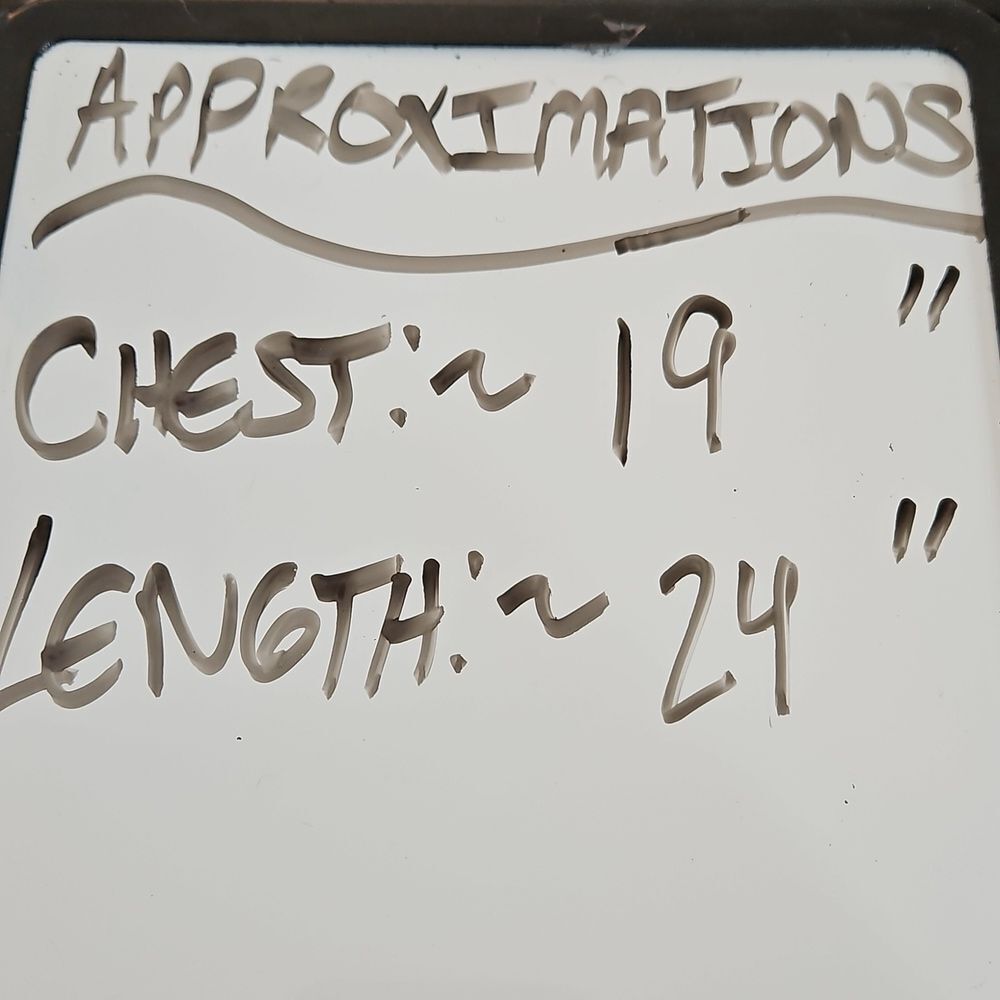 APPROXIMATIONS
CHEST: ~ 19 "
LENGTH: ~ 24 "